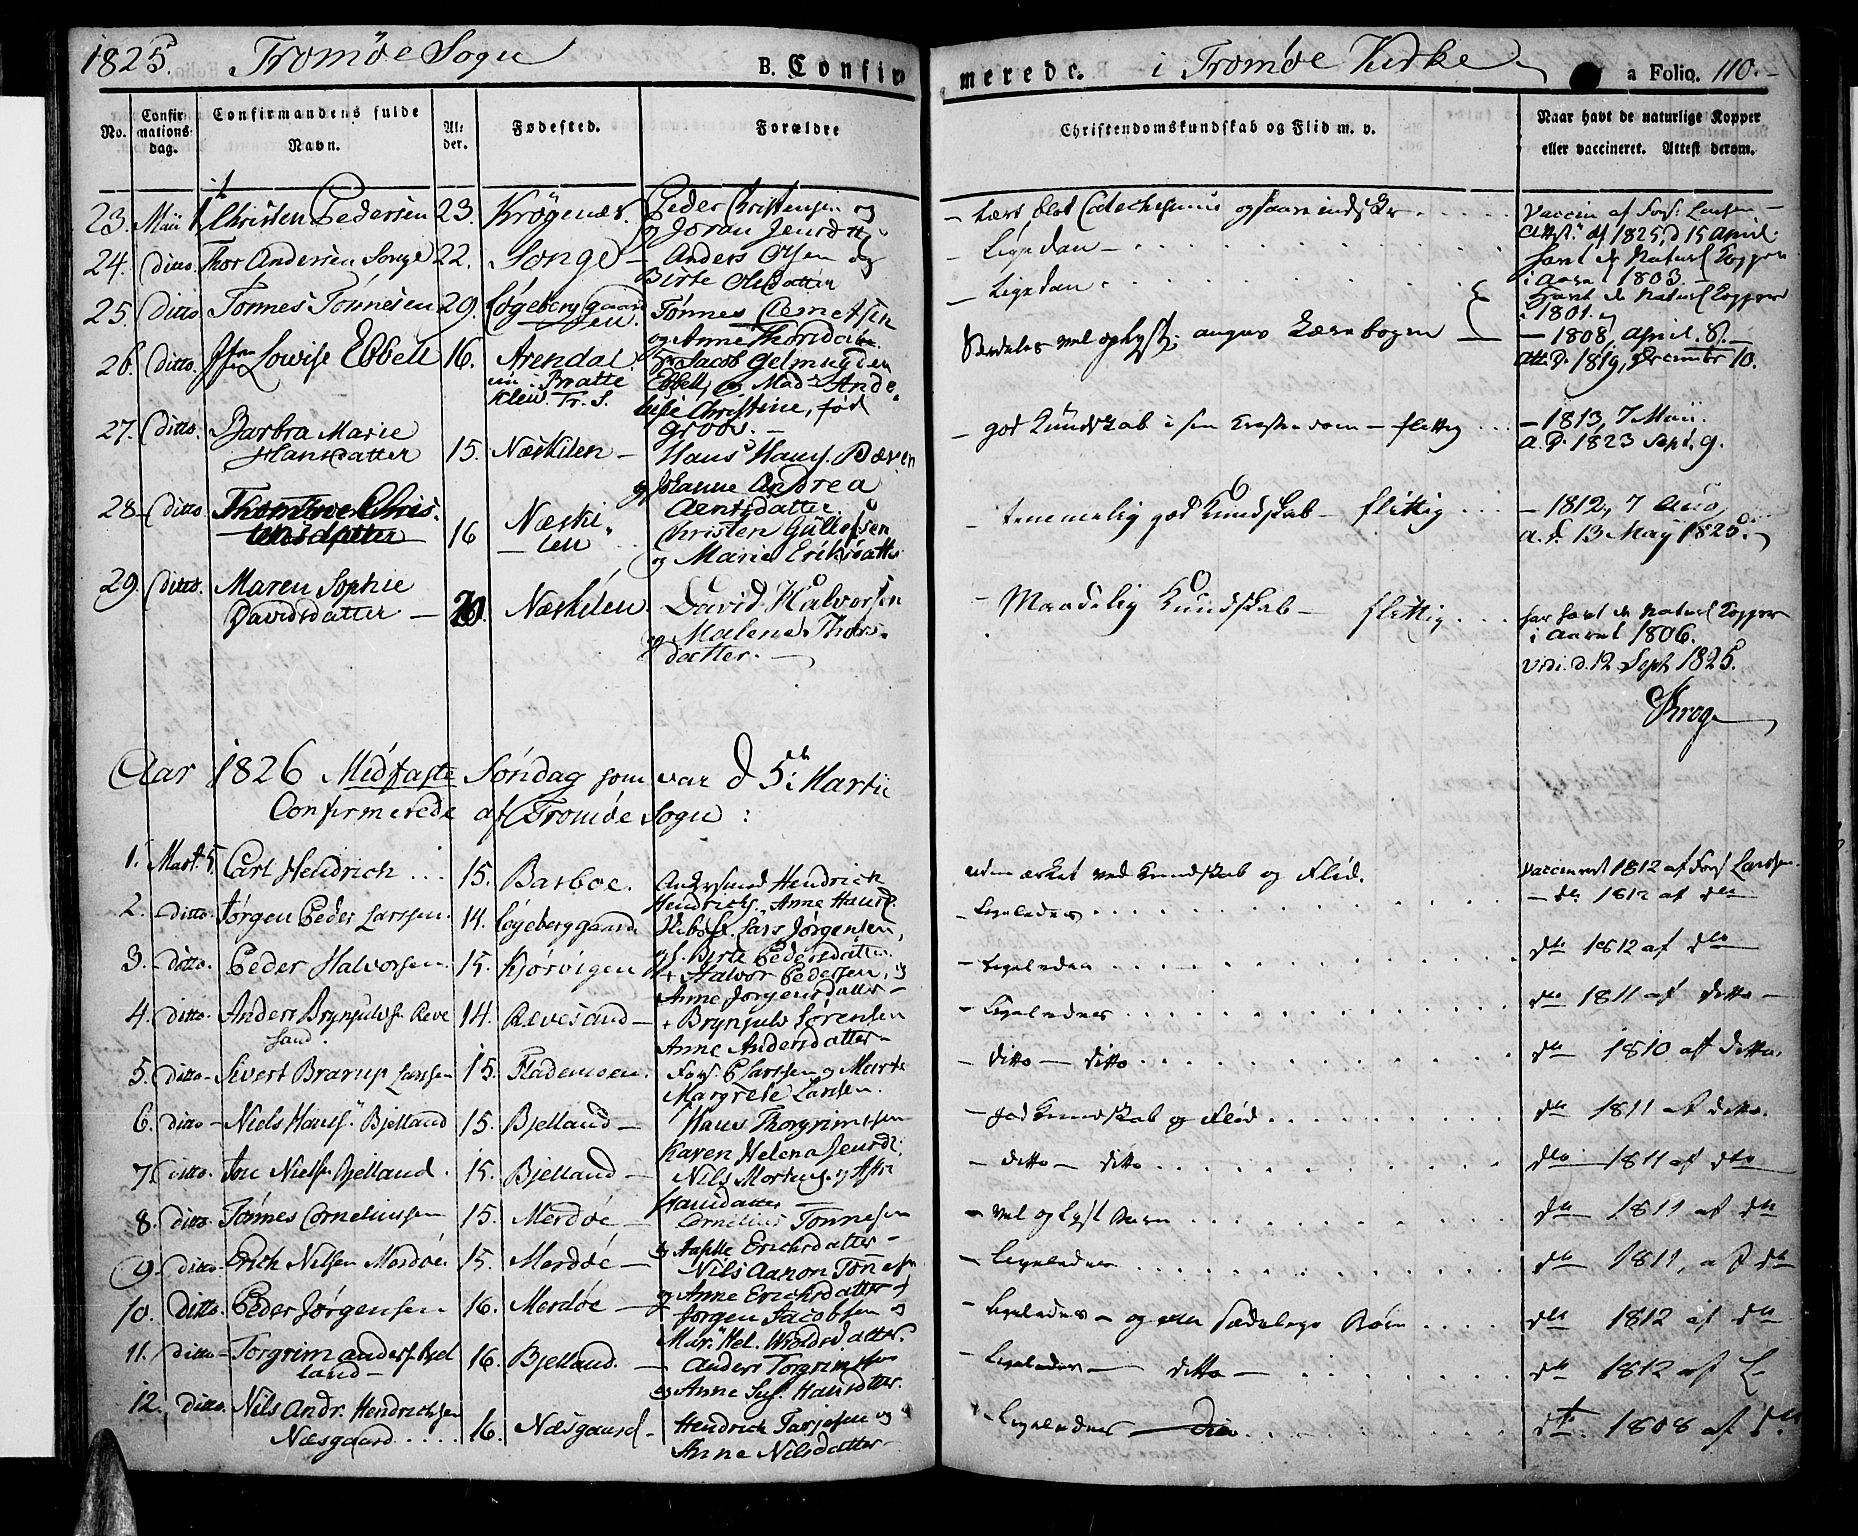 1825. Tromøe Sogn B. Confir merede. i Tromøe Kirke a Folio. 110.
No. Confirmations dag. Confirmandens fulde Navn. Alder. Fødested. Forældre Christendomskundskab og Flid m. v. Naar havt de naturlige Kopper eller vaccineret. Attest derom.
23. Maii 1 Christen Pedersen 23. Krøgenæs. Peder Christensen og
Joran Jensdtr
Vaccin af Forf. Larsen
Attest af 1825, d 15 April.
24. Ditto. Thor Andersen Songe 22. Songe Anders Olsen og
Birte Olsdatter
- Ligedan - havt de Naturl Kopper
i Aaret 1803.
25. Ditto Tønnes Tønnesen 29. Løgeberggaard Tønnes Clemetsen
og Anne Thorsdatter
- Ligedan. havt de Naturl Kopper
1801.
26. Ditto. Jfr Lowise Ebbell 16. Arendal Jacob Gelmuyden
nu i Bratte Ebbell, og Mad. Ande
klev. Tr. S. lisse Christine, fød
Groos. -
- 1808, April. 8. -
Att. D. 1819, December 10.
27. Ditto. Barbra Marie
Hansdatter 15. Næskilen - Hans Hans. Bærøen
og Johanne Andrea
Aentsdatter.
- god Kundskab i sin Christendom - flittig
- 1813, 7 Maii.
a. D. 1823 Sept. 9.
28. Ditto Thomine Chris-
tensdatter 16 Næski-
len Christen Gullofsen
og Marie Eriksdatter
- temmelig god Kundskab - flittig
- 1812, 7
a. d. 13 May 1825.
29. Ditto. Maren Sophie
Davidsdatter - 20. Næskilen David Halvorsen
og Malene Thors-
datter. -
- Maadelig Kundskab - flittig
har havt de Naturl Kopper
i Aaret 1806.
Vidi. d. 12 Sept 1825.
Krog
Aar 1826 Midfaste Søndag som var d 5te Martii
Confirmerede af Tromøe Sogn:
1. Mart. 5. Carl Hendrich 15. Barboe. Hendrich
Hendrichs. Anne Hansd.
udmærket ved Kundskab og Flid. Vaccineret 1812 af Forf Larssen.
2. Ditto. Jørgen Peder Larssen. 14. Løgeberggaard Lars Jørgensen,
Birte Pedersdatter.
- Ligeledes - do 1812 af dto
3. Ditto. Peder Halvorsen. 15. Kjørvigen Halvor Pedersen, og
Anne Jørgensdatter -
- Ligeledes dto 1812 af dto
4. Ditto. Anders Brynjulvs. Reve
sand. 14. Revesand - Brynjulv Sørensen
Anne Andersdatter -
- Ligeledes dto 1811 af ditto -
5. Ditto - Sivert Brarup Larssen 15. Flademoen. Forf. P Larssen og Marte
Margrete Larsen.
- ditto - ditto dto 1810 af ditto.
6. Ditto - Niels Hans. Bjelland 15. Bjelland - Hans Thorgrimssen
Karen Helena Jensd.
- god Kundskab og Flid dto 1811 af ditto.
7. Ditto. Jon Niels. Bjelland. 15. Bjelland - Nils Mortens. og
Hansdatter
- ditto - ditto dto 1811 af dto
8. Ditto. Tønnes Corneliussen 15. Merdøe - Cornelius Tønnesen
Erichsdatter -
- vel oplyst Barn dto 1811 af dto
9. Ditto. Erich Nilsen Merdøe. 15. Merdøe - Nils Aanon Tønnesen
og Anne Erichsdatter
- Ligeledes dto 1811, af dto
10. Ditto. Peder Jørgensen 16. Merdøe - Jørgen Jacobsen og
Mar. Hel. Wroldsdatter.
- Ligeledes - og Sædelige Børn dto 1812 af dto
11. Ditto - Torgrim Anders. Bjel
land - 16. Bjelland. - Anders Torgrimssen
og Anne Sus. Hansdatter.
- Ligeledes - ditto - dto 1812 af L-
12. Ditto. Nils Andr. Hendrichsen
Næsgaard 16. Næsgaard - Hendrich Tarjesen og
Anne Nilsdatter -
- Ligeledes - dito. dto. 1808 af dto